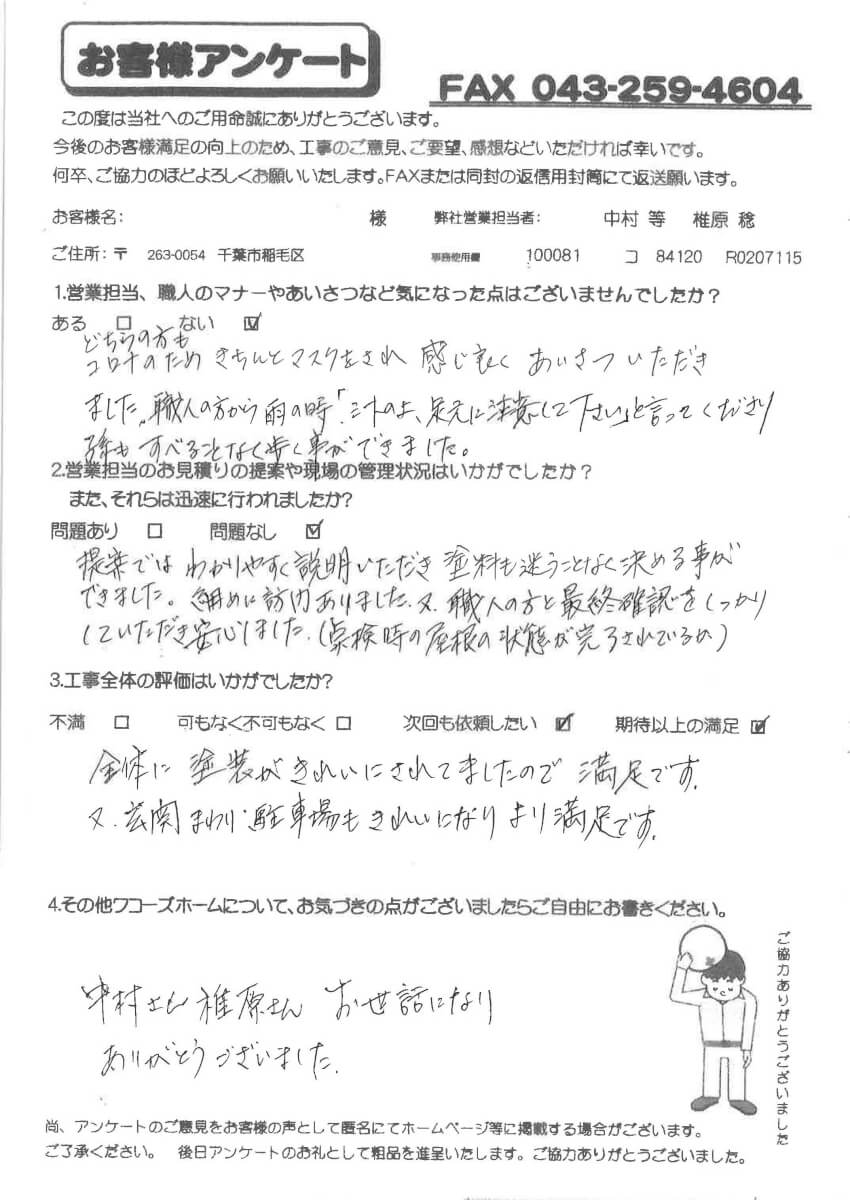 お客様アンケート
FAX 043-259-4604
この度は当社へのご用命誠にありがとうございます。
今後のお客様満足の向上のため、工事のご意見、ご要望、感想などいただければ幸いです。
何卒、ご協力のほどよろしくお願いいたします。FAXまたは同封の返信用封筒にて返送願います。
お客様名: 様 弊社営業担当者: 中村 等 椎原 稔
ご住所:〒 263-0054 千葉市稲毛区 事務使用欄 100081 コ 84120 R0207115
1.営業担当、職人のマナーやあいさつなど気になった点はございませんでしたか?
ある □ ない ☑
どちらの方も
コロナのため きちんとマスクをされ 感じ良く あいさつ いただき
ました。職人の方から雨の時「シートの上、足元に注意して下さい」と言ってくださり
すべることなく歩く事ができました。
2.営業担当のお見積りの提案や現場の管理状況はいかがでしたか?
また、それらは迅速に行われましたか?
問題あり □ 問題なし ☑
提案では わかりやすく説明いただき 塗料も迷うことなく決める事が
できました。細めに訪問ありました。又、職人の方と最終確認をしっかり
していただき安心しました。(点検時の屋根の状態が完了されているか)
3.工事全体の評価はいかがでしたか?
不満 □ 可もなく不可もなく □ 次回も依頼したい ☑ 期待以上の満足 ☑
全体に 塗装がきれいにされてましたので 満足です。
又、玄関まわり・駐車場もきれいになり より満足です。
4.その他ワコーズホームについて、お気づきの点がございましたらご自由にお書きください。
中村さん 椎原さん お世話になり
ありがとうございました。
ご協力ありがとうございました
尚、アンケートのご意見をお客様の声として匿名にてホームページ等に掲載する場合がございます。
ご了承ください。 後日アンケートのお礼として粗品を進呈いたします。ご協力ありがとうございました。